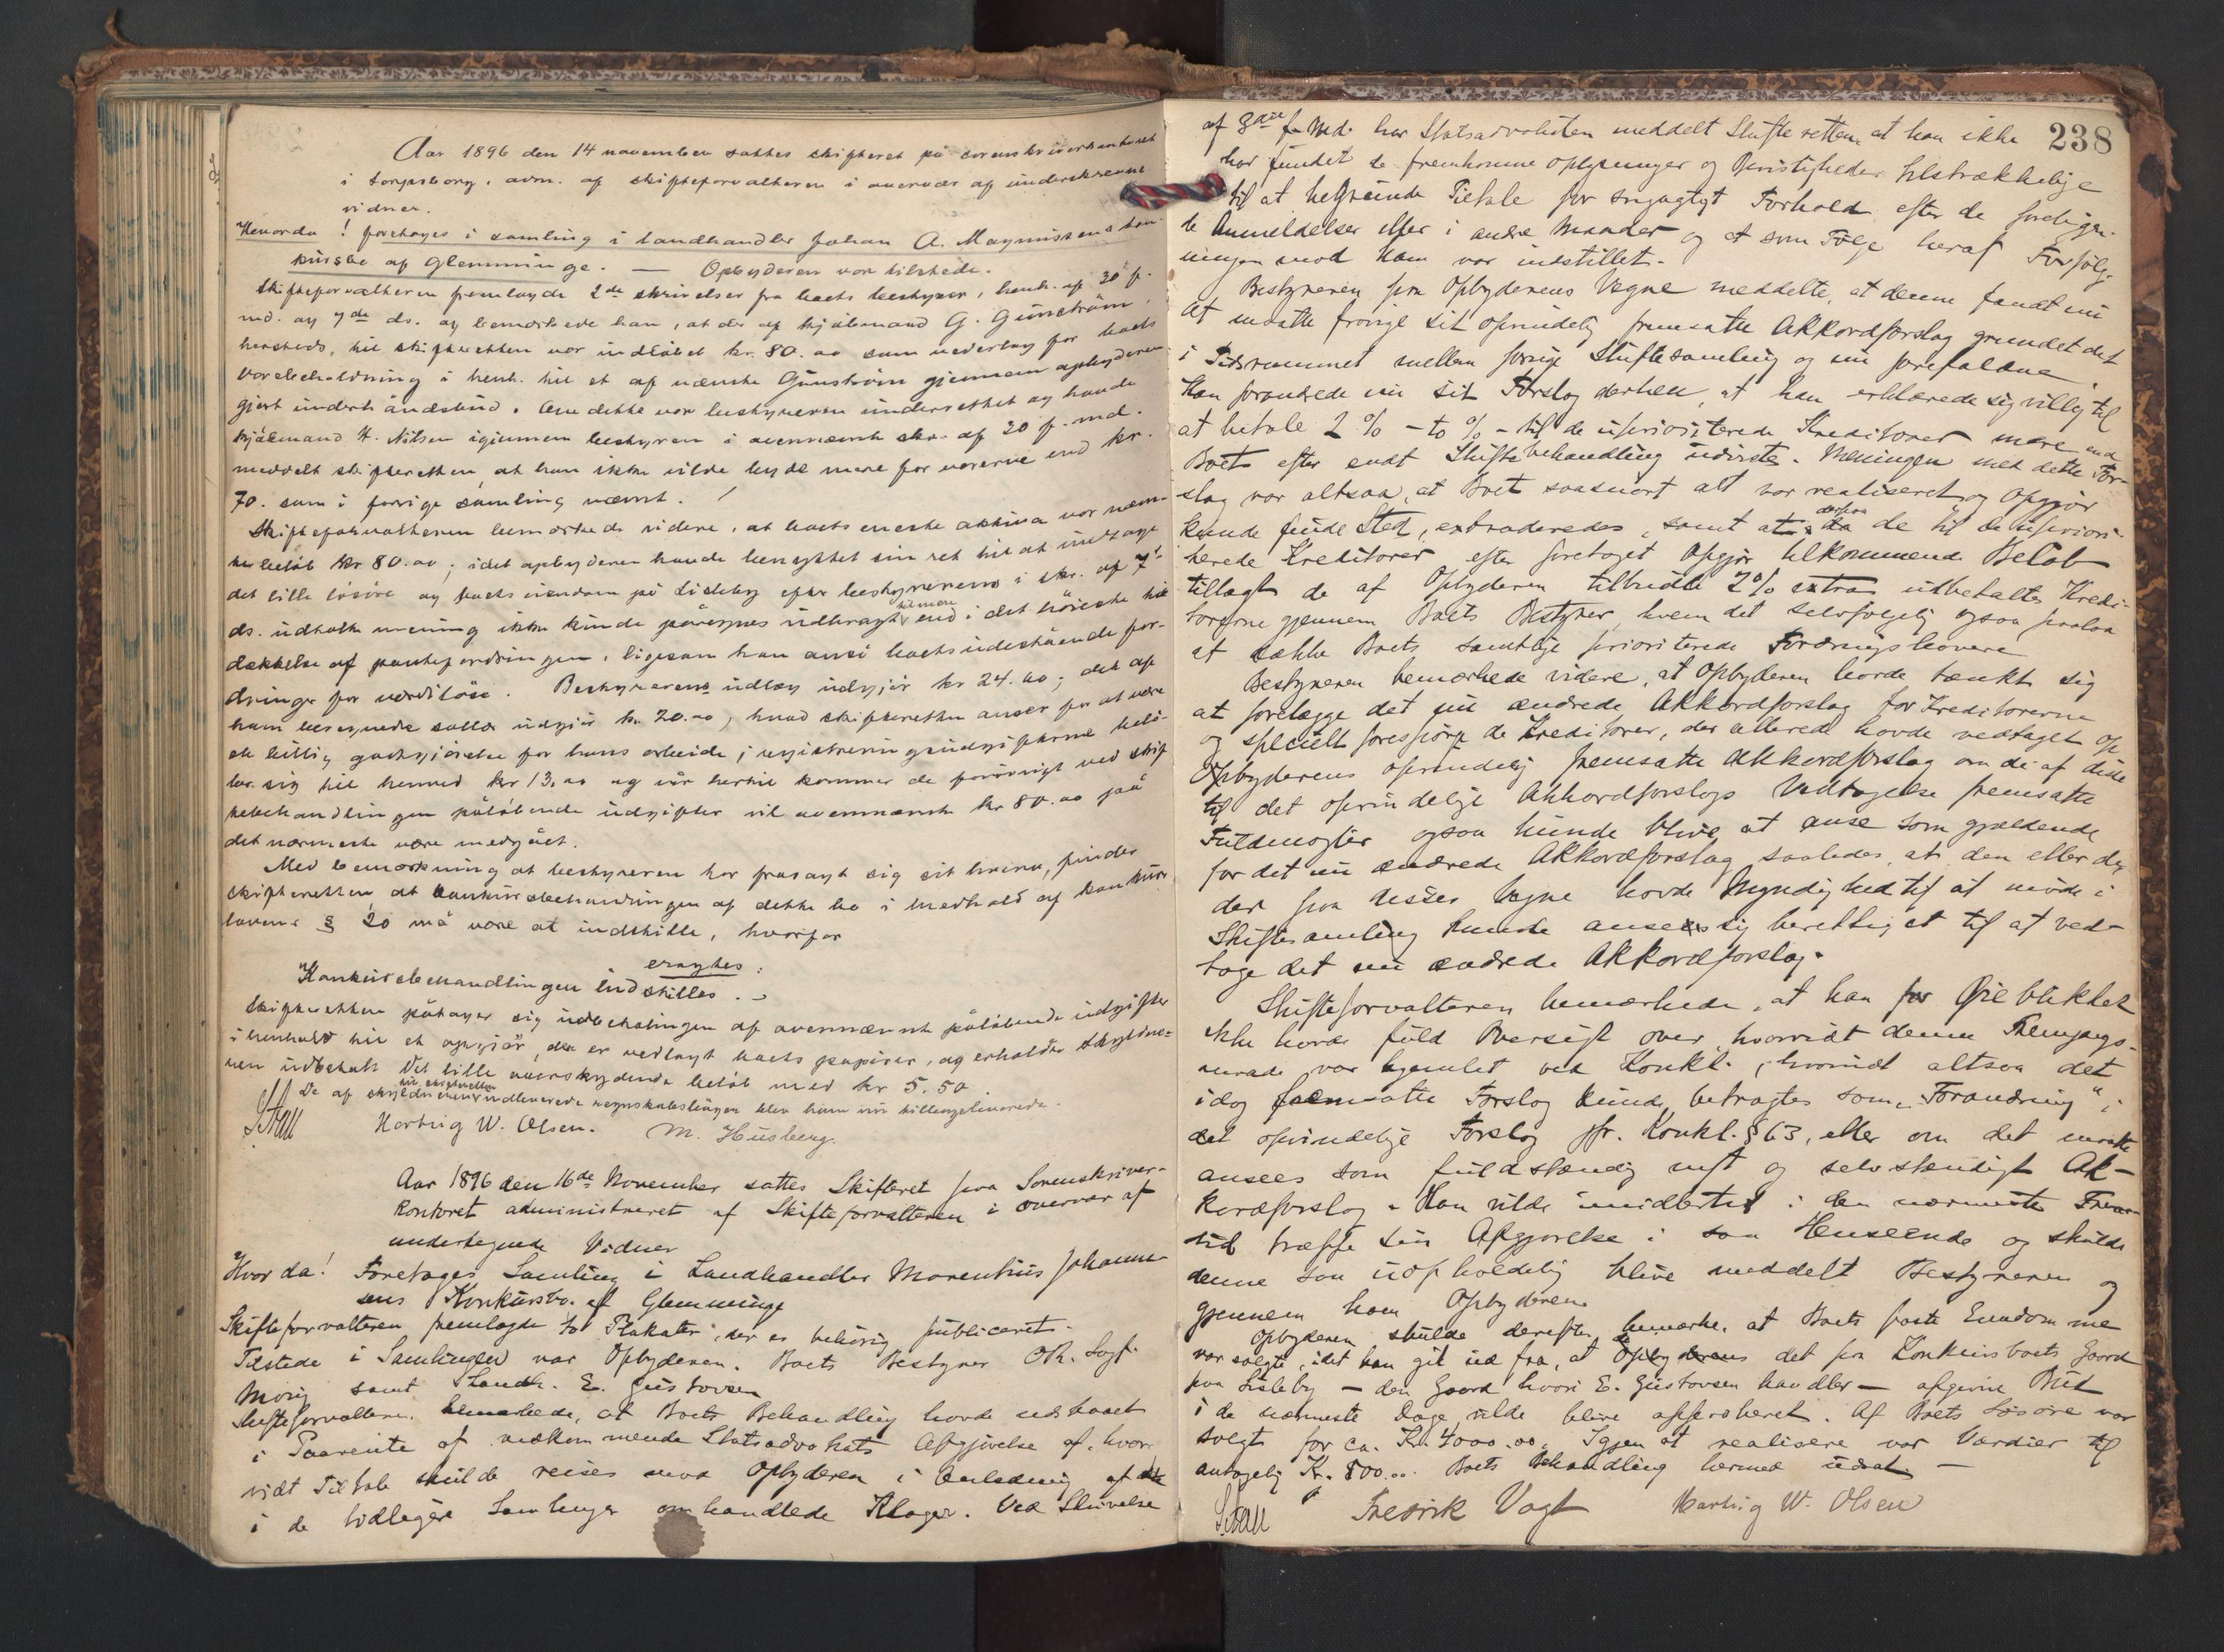 Aar 1896 den 14 november sattes skifteret på sorenskriverkontoret
i Sarpsborg, adm. af skifteforvalteren i overvær af underskrevne
vidner.
Hvorda! foretoges i samling i landhandler Johan A. Magnussens kon-
kursbo af Glemminge. — Opbyderen var tilstede.
Skifteforvalteren fremlagde 2de skrivelser fra boets bestyrer, henh. af 30 f.
md. og 7de ds. og bemærkede han, at der af kjøbmand G. Gunström
hersteds, til skifteretten var indløbet kr. 80.00 som vederlag for boets
varebeholdning i henh. til et af nævnte Gunström gjennem opbyderen
gjort underhåndsbud. Om dette var bestyreren underrettet og havde
kjøbmand H. Nilsen igjennem bestyreren i ovennævnte skr. af 30 f. md.
meddelt skifteretten, at han ikke vilde byde mere for varerne end kr.
70. som i forrige samling nævnt.
Skifteforvalteren bemærkede videre, at boets eneste aktiva var nævn-
te beløb kr. 80.00; idet opbyderen havde benyttet sin ret til at undtage
det lille løsøre og boets eiendom på Lisleby efter bestyrerens i skr. af 7de
ds. udtalte mening ikke kunde påregnes udbragt til mere end i det høieste til
dækkelse af pantefordringen, ligesom han anså boets udestående for-
dringer for værdiløse. Bestyrerens udlæg udgjør kr 24.00; det af
ham beregnede salær udgjør kr. 20.00, hvad skifteretten anser for at være
en billig godtgjørelse for hans arbeide; registreringsudgifterne belø-
ber sig til henved kr 13.00 og når hertil kommer de forøvrigt ved skif-
tebehandlingen påløbende udgifter vil ovennævnte kr 80.00 på
det nærmeste være medgået.
Med bemærkning at bestyreren har frasagt sig sit hverv, finder
skifteretten, at konkursbehandlingen af dette bo i medhold af konkurs
lovens § 20 må være at indstille, hvorfor
eragtes:
Konkursbehandlingen indstilles.
Skifteretten påtager sig udbetalingen af ovennævnte påløbende udgifter
i henhold til et opgjør, der er vedlagt boets papirer, og erholder skyldne-
ren udbetalt det lille overskydende beløb med kr 5.50.
De af skyldneren til skifteretten indleverede regnskabsbøger blev ham nu tilbageleverede.
Hartvig W. Olsen. M. Husberg.
Aar 1896 den 16de November sattes Skifteret paa Sorenskriver-
kontoret administreret af Skifteforvalteren i overvær af
undertegnede Vidner
Hvor da! Foretages Samling i Landhandler Marentius Johanne-
sens Konkursbo af Glemminge
Skifteforvalteren fremlagde to Plakater, der er behørig publiceret.
Tilstede i Samlingen var Opbyderen. Boets Bestyrer OR. Sagf.
samt Landh. E. Gustavsen
Skifteforvalteren bemærkede, at Boets Behandling havde udstaaet
i Paavente af vedkommende Statsadvokats Afgjørelse af, hvor-
vidt Tiltale skulde reises mod Opbyderen i Anledning af de
i de tidligere Samlinger omhandlede Klager. Ved Skrivelse
238
af 3die f. Md. har Statsadvokaten meddelt Skifteretten, at han ikke
har fundet de fremkomne Oplysninger og Bevisligheder tilstrækkelige
til at begrunde Tiltale for svigagtigt Forhold efter de foreliggen-
de Anmeldelser eller i andre Maader og at som Følge heraf Forfølg-
ningen mod ham var indstillet.
Bestyreren paa Opbyderens Vegne meddelte, at denne fandt nu
at maatte frafalde sit oprindelig fremsatte Akkordforslag grundet det
i Tidsrummet mellem forrige Skiftesamling og nu forefaldne.
Han forandrede nu sit Forslag derhen, at han erklærede sig villig til
at betale 2 % - to % - til de uprioriterede Kreditorer mere end
Boets efter endt Skiftebehandling udviste. Meningen med dette For-
slag var altsaa, at Boet saasnart alt var realiseret og Opgjør
kunde finde Sted, extraderedes, samt at derpaa de til de upriori-
terede Kreditorer efter foretaget Opgjør tilkommende Beløb
tillagt de af Opbyderen tilbudte 2% extra udbetaltes Kredi-
torerne gjennem Boets Bestyrer, hvem det selvfølgelig ogsaa paalaa
at dække Boets samtlige prioriterede Fordringshavere
Bestyreren bemærkede videre, at Opbyderen havde tænkt sig
at forelægge det nu ændrede Akkordforslag for Kreditorerne
og specielt forespørge de Kreditorer, der allerede havde vedtaget
Opbyderens oprindelig fremsatte Akkordforslag om de af disse
til det oprindelige Akkordforslags Vedtagelse fremsatte
Fuldmagter ogsaa kunde blive at anse som gjældende
for det nu ændrede Akkordforslag saaledes, at den eller de,
der paa disses Vegne havde Myndighed til at møde i
Skiftesamling kunde anse sig berettiget til at ved-
tage det nu ændrede Akkordforslag.
Skifteforvalteren bemærkede, at han for Øieblikket
ikke havde fuld Oversigt over, hvorvidt denne Fremgangs-
maade var hjemlet ved Konkl., hvorvidt altsaa det
idag fremsatte Forslag kunde betragtes som „Forandring“ i
det oprindelige Forslag jfr. Konkl. § 63, eller om det maatte
ansees som fuldstændig nyt og selvstændigt Ak-
kordforslag. Han vilde imidlertid i den nærmeste Frem-
tid træffe sin Afgjørelse i saa Henseende og skulde
denne saa uopholdelig blive meddelt Bestyreren og
gjennem ham Opbyderen.
Opbyderen skulde derefter bemærke, at Boets faste Eiendomme
var solgte, idet han gik ud fra, at det paa Konkursboets Gaard
paa Lisleby — den Gaard hvori E. Gustavsen handler — afgivne Bud
i de nærmeste Dage vilde blive approberet. Af Boets Løsøre var
solgt for ca. Kr. 4000.00. Igjen at realisere var Værdier til
antagelig Kr. 800.00. Boets Behandling hermed udsat. —
Fredrik Vogt Hartvig W. Olsen